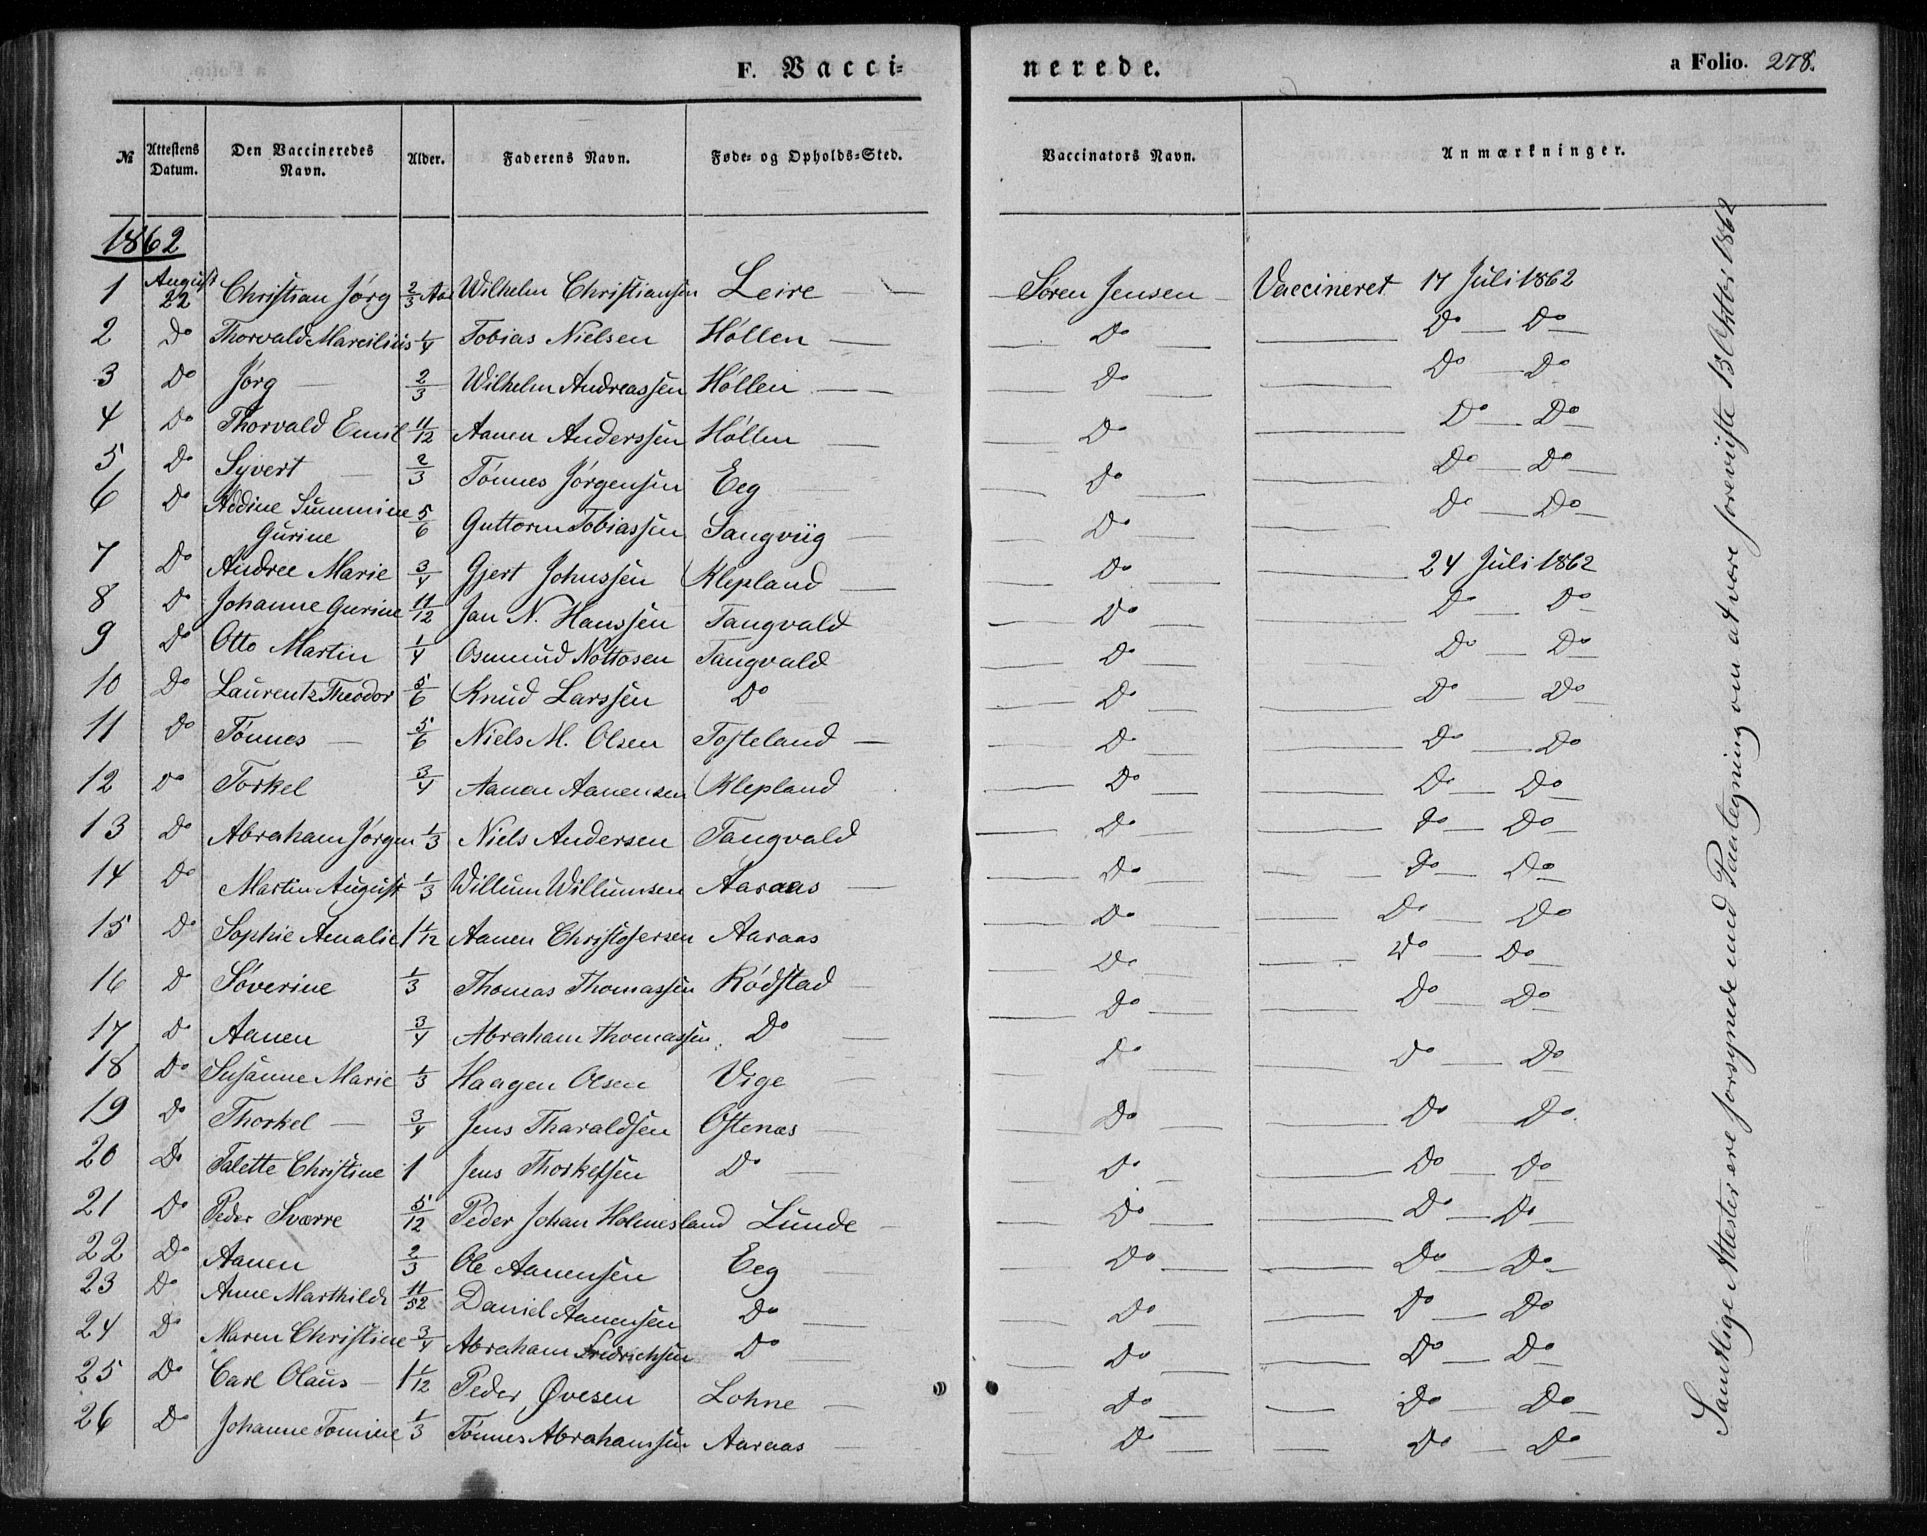 F. Vacci=
nerede.
a Folio. 278.
№ | Attestens Datum. | Den Vaccineredes Navn. | Alder. | Faderens Navn. | Føde= og Opholds=Sted. | Vaccinators Navn. | Anmærkninger.
1862
1 | August 22 | Christian Jörg | 2/3 Aar | Wilhelm Christiansen | Leire — | Søren Jensen | Vaccineret 17 Juli 1862
2 | Do | Thorvald Marcilius | 1/4 | Tobias Nielsen | Höllen — | Do | Do — Do
3 | Do | Jörg — | 2/3 | Wilhelm Andreassen | Höllen — | Do | Do — Do
4 | Do | Thorvald Emil | 11/12 | Aanen Anderssen | Höllen — | Do | Do — Do
5 | Do | Syvert — | 2/3 | Tönnes Jörgensen | Eeg | Do | Do — Do
6 | Do | Addine Summine Gurine | 5/6 | Guttorm Tobiassen | Sangviig — | Do | Do — Do
7 | Do | Andree Marie | 3/4 | Gjert Johnssen | Klepland — | Do | 24 Juli 1862
8 | Do | Johanne Gurine | 11/12 | Jan N. Hanssen | Tangvald | Do | Do — Do
9 | Do | Otto Martin | 1/4 | Osmund Nottosen | Tangvald | Do | Do — Do
10 | Do | Laurentz Theodor | 5/6 | Knud Larssen | Do | Do | Do — Do
11 | Do | Tönnes — | 5/6 | Niels M. Olsen | Tofteland — | Do | Do — Do
12 | Do | Torkel | 3/4 | Aanen Aanensen | Klepland | Do | Do — Do
13 | Do | Abraham Jørgen | 1/3 | Niels Andersen | Tangvald | Do | Do — Do
14 | Do | Martin August | 1/3 | Willum Willumsen | Aaraas — | Do | Do — Do
15 | Do | Sophie Amalie | 1 1/12 | Aanen Christofersen | Aaraas | Do | Do — Do
16 | Do | Söverine | 1/3 | Thomas Thomassen | Rödstad — | Do | Do — Do
17 | Do | Aanen | 3/4 | Abraham Thomassen | Do — | Do | Do — Do
18 | Do | Susanne Marie | 1/3 | Haagen Olsen | Vige — | Do | Do — Do
19 | Do | Thorkel — | 3/4 | Jens Tharaldsen | Ostenæs — | Do | Do — Do
20 | Do | Talette Christine | 1 | Jens Thorkelsen | Do — | Do | Do — Do
21 | Do | Peder Sværre | 5/12 | Peder Johan Holmesland | Lunde — | Do | Do — Do
22 | Do | Aanen | 2/3 | Ole Aanensen | Eeg — | Do | Do — Do
23 | Do | Anne Marthilde | 11/52 | Daniel Aanensen | Do — | Do | Do — Do
24 | Do | Maren Christine | 3/4 | Abraham Fredrichsen | Do — | Do | Do — Do
25 | Do | Carl Olaus — | 1 1/12 | Peder Øvesen | Lohne — | Do | Do — Do
26 | Do | Johanne Tomine | 1/3 | Tönnes Abrahamssen | Aaraas — | Do | Do — Do
Samtlige Attester ere forsynede med Paategning om at være foreviiste 13 Oktbr 1862